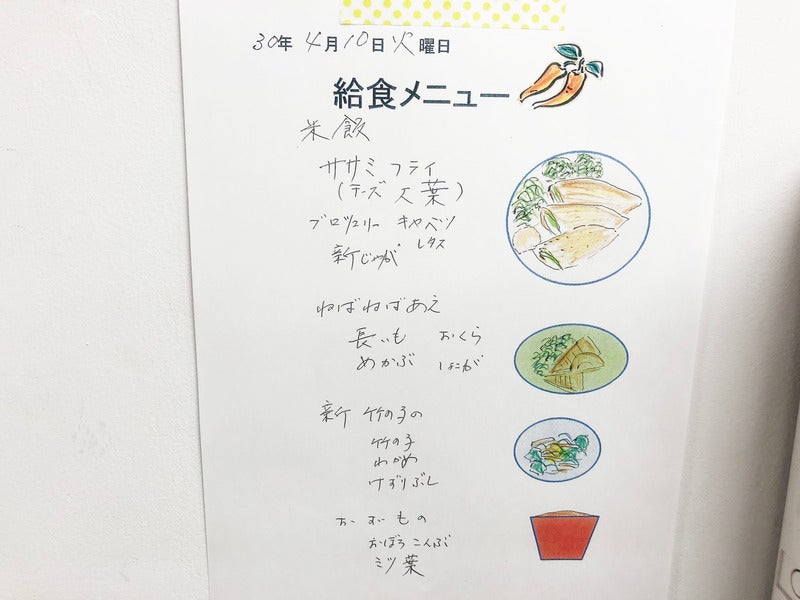 30年 4月10日火曜日
給食メニュー
米飯
ササミ フライ
(チーズ 大葉)
ブロッコリー キャベツ
レタス
新じゃが
ねばねばあえ
長いも おくら
めかぶ しょうが
新 竹の子の
竹の子
わかめ
けずりぶし
おすいもの
おぼろこんぶ
ミツ葉